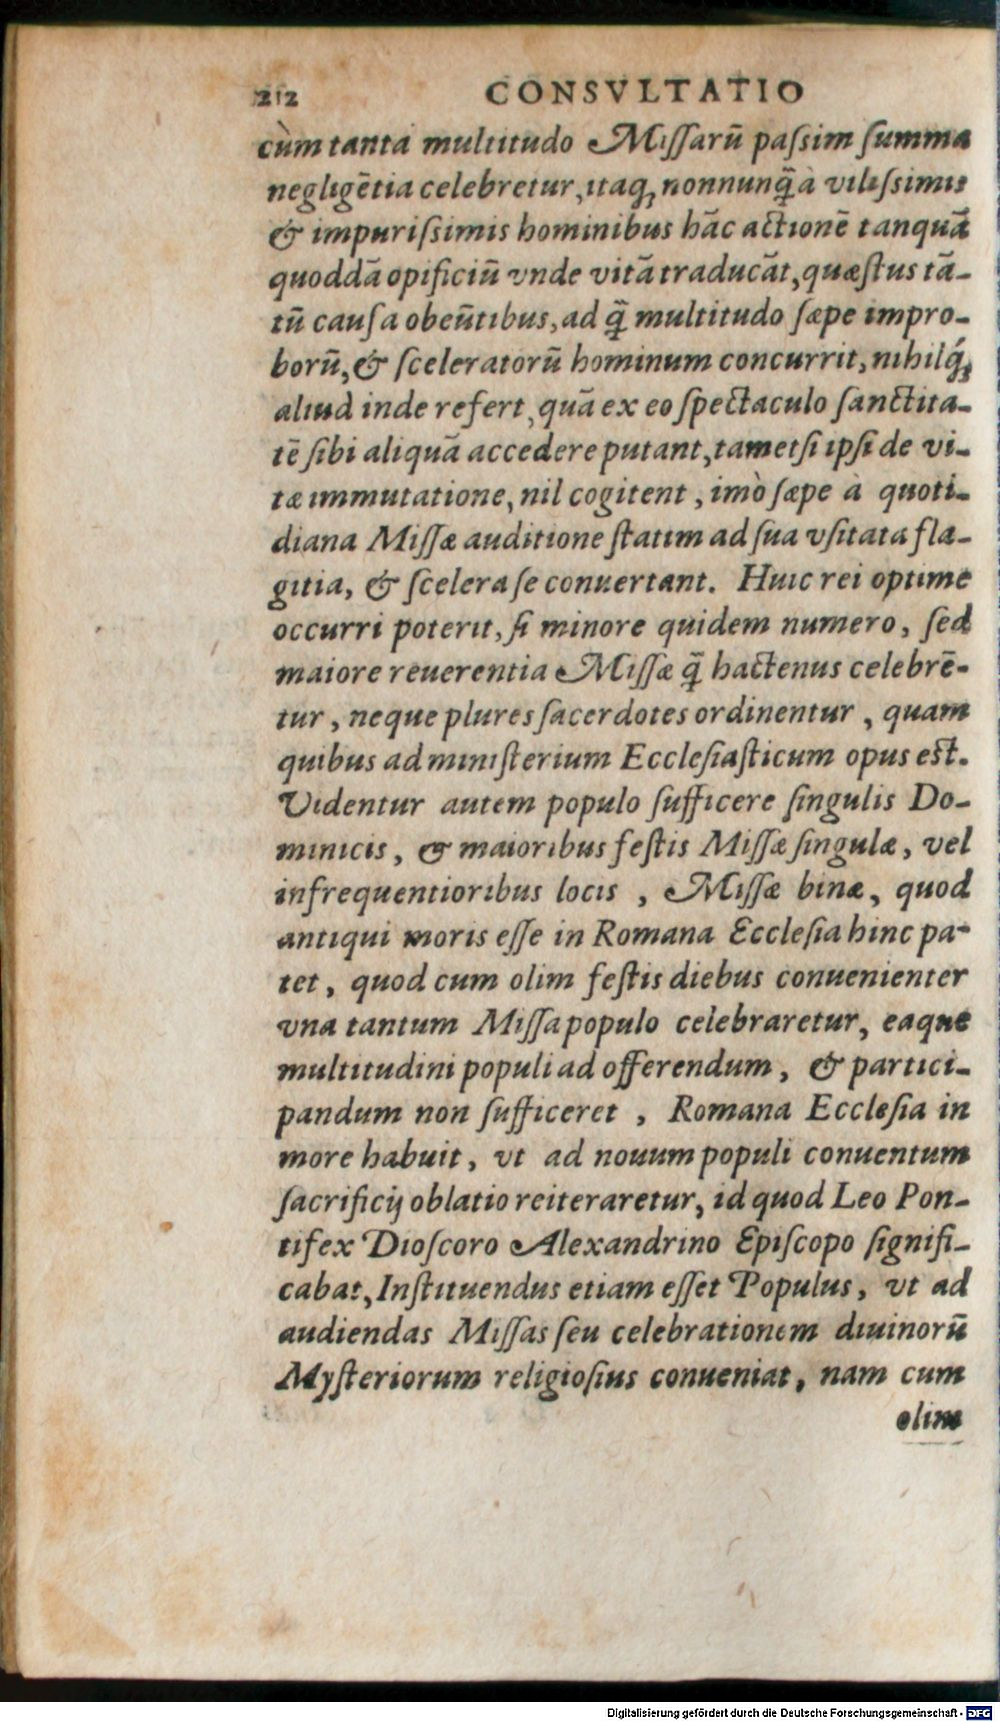 212 CONSVLTATIO
cùm tanta multitudo Miſſarū paſsim ſumma
negligētia celebretur, itaq; nonnunq̄ à viliſsimis
& impuriſsimis hominibus hāc actionē tanquā
quoddā opificiū vnde vitā traducāt, quæſtus tā-
tū cauſa obeūtibus, ad q̄ multitudo ſæpe impro-
borū, & ſceleratorū hominum concurrit, nihilq́;
aliud inde refert, quā ex eo ſpectaculo ſanctita-
tē ſibi aliquā accedere putant, tametſi ipſi de vi-
tæ immutatione, nil cogitent, imò ſæpe à quoti-
diana Miſſæ auditione ſtatim ad ſua vſitata fla-
gitia, & ſcelera ſe conuertant. Huic rei optime
occurri poterit, ſi minore quidem numero, ſed
maiore reuerentia Miſſæ q̄ hactenus celebrē-
tur, neque plures ſacerdotes ordinentur, quam
quibus ad miniſterium Eccleſiaſticum opus est.
Videntur autem populo ſufficere ſingulis Do-
minicis, & maioribus feſtis Miſſæ ſingulæ, vel
infrequentioribus locis, Miſſæ binæ, quod
antiqui moris eſſe in Romana Eccleſia hinc pa-
tet, quod cum olim feſtis diebus conuenienter
vna tantum Miſſa populo celebraretur, eaque
multitudini populi ad offerendum, & partici-
pandum non ſufficeret, Romana Eccleſia in
more habuit, vt ad nouum populi conuentum
ſacrificij oblatio reiteraretur, id quod Leo Pon-
tifex Dioſcoro Alexandrino Epiſcopo ſignifi-
cabat, Inſtituendus etiam eſſet Populus, vt ad
audiendas Miſſas ſeu celebrationem diuinorū
Myſteriorum religioſius conueniat, nam cum
olim
Digitalisierung gefördert durch die Deutsche Forschungsgemeinschaft - DFG